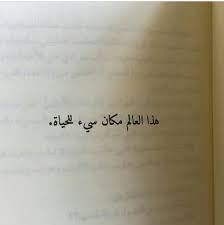 هذا العالم مكان سيء للحياة.